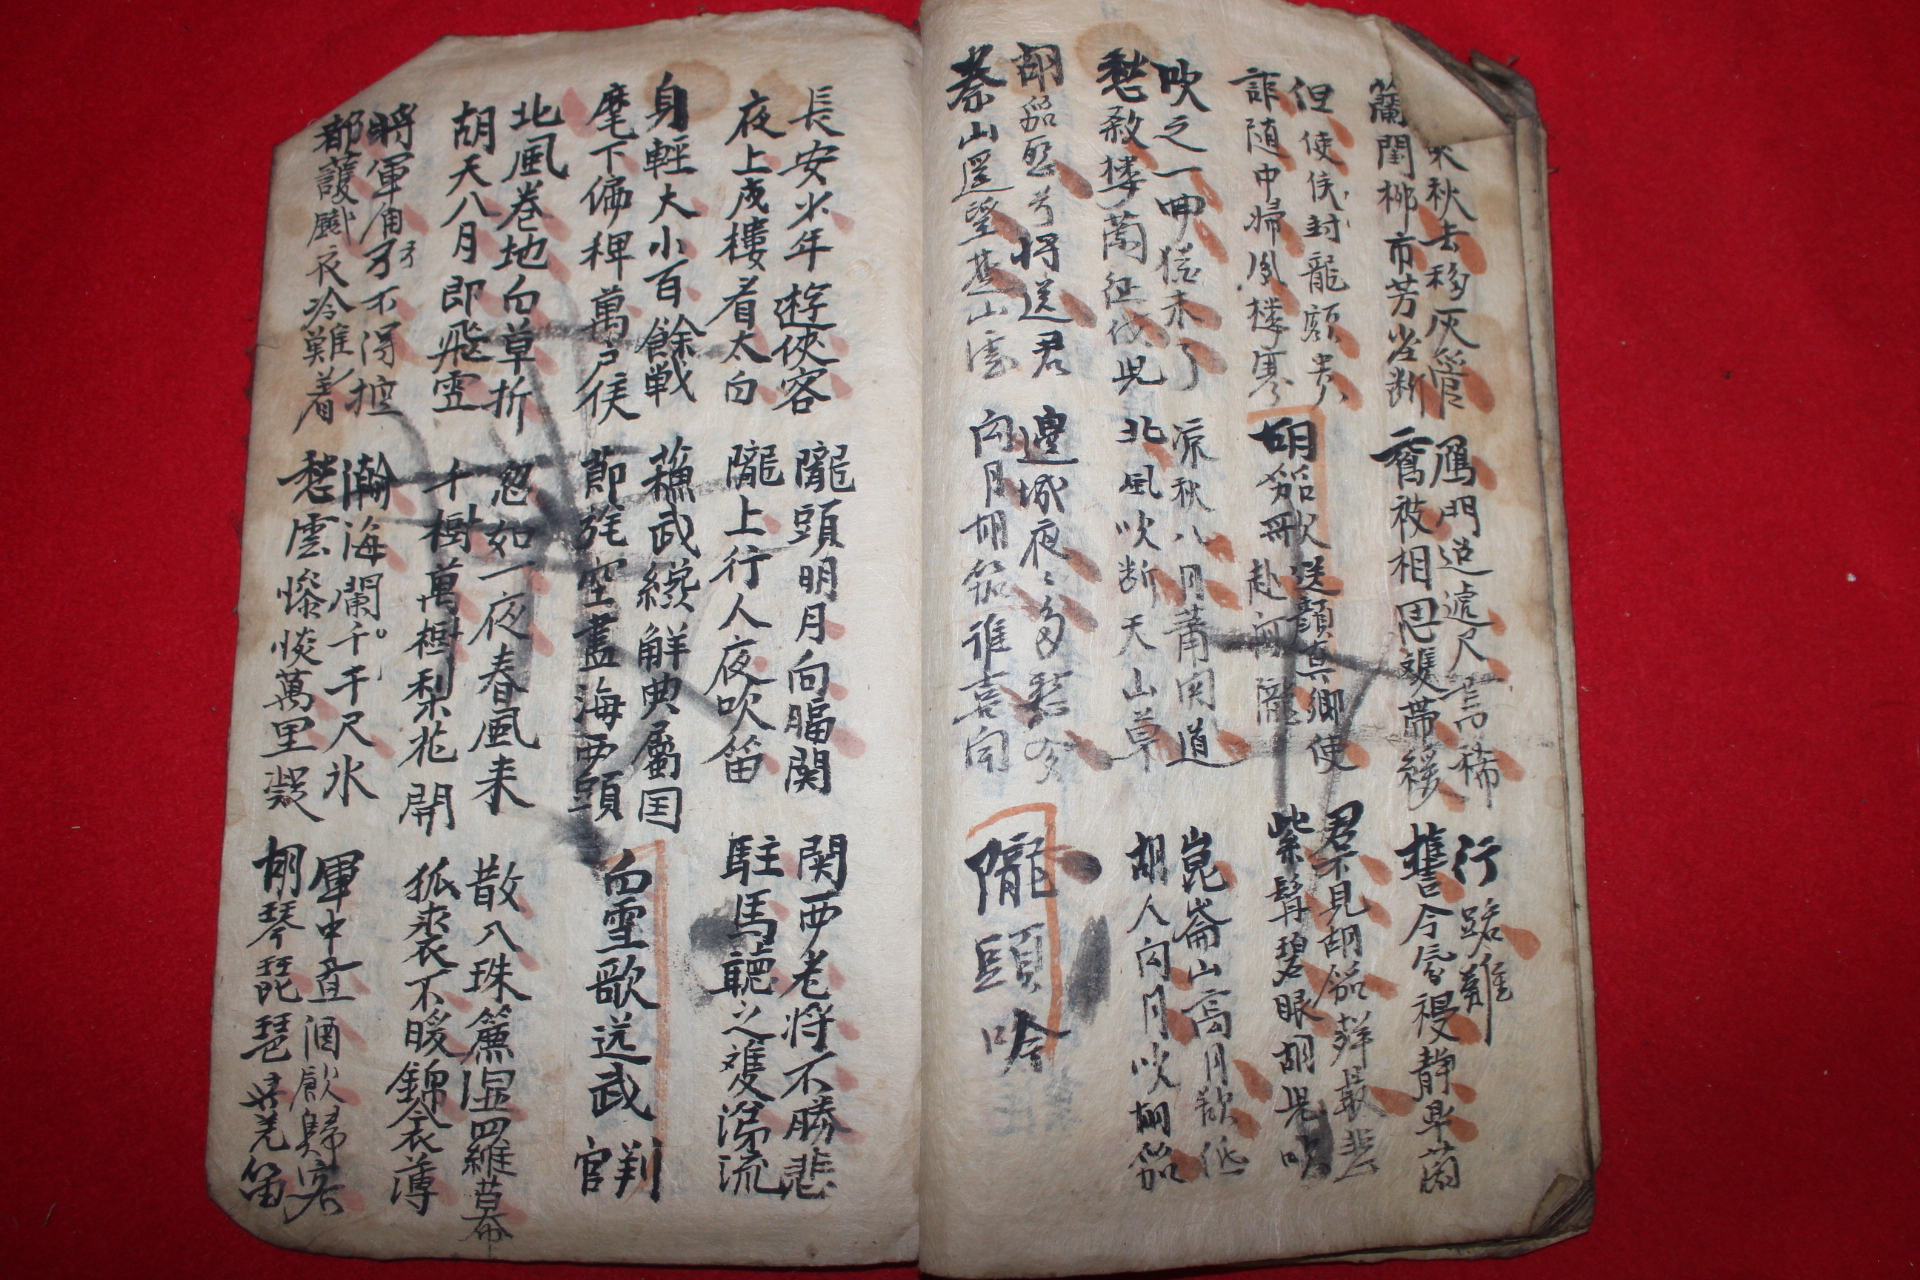 來秋去移灰管
蘭閨柳市芳塵断
鴈門迢遞尺書稀
鴛被相思雙帶緩
行路難
誓令氛祲静皐蘭
但使侯封龍額貴
詎随中婦鳳樓寒
胡笳歌送顔真卿使
赴河隴
君不見胡笳聲最悲
紫髯碧眼胡児吹
吹之一曲猶未了
愁殺楼蘭征戍児
凉秋八月蕭関道
北風吹断天山草
崑崙山高月欲低
胡人向月吹胡笳
胡笳怨兮将送君
秦山遥望山雲
邊城夜〻多愁夢
向月胡笳誰喜聞
隴頭吟
長安少年遊俠客
夜上戍樓看太白
隴頭明月向臨関
隴上行人夜吹笛
関西老将不勝悲
駐馬聽之雙涕流
身輕大小百餘戦
麾下偏稗萬戶侯
蘓武纔解典屬国
節旄空盡海西頭
白雪歌送武判
官
北風卷地白草折
胡天八月即飛雪
忽如一夜春風来
千樹萬樹梨花開
散入珠簾濕羅幕
狐裘不暖錦衾薄
將軍角弓不得控
都護鐵衣冷難着
瀚海闌干千尺氷
愁雲慘惔萬里凝
軍中置酒飮歸客
胡琴琵琶與羌笛